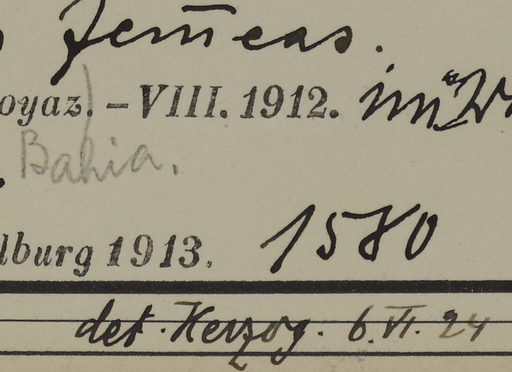 femeas.
oyaz). – VIII. 1912. im
Bahia.
lburg 1913. 1580
det. Herzog. 6.VI. 24